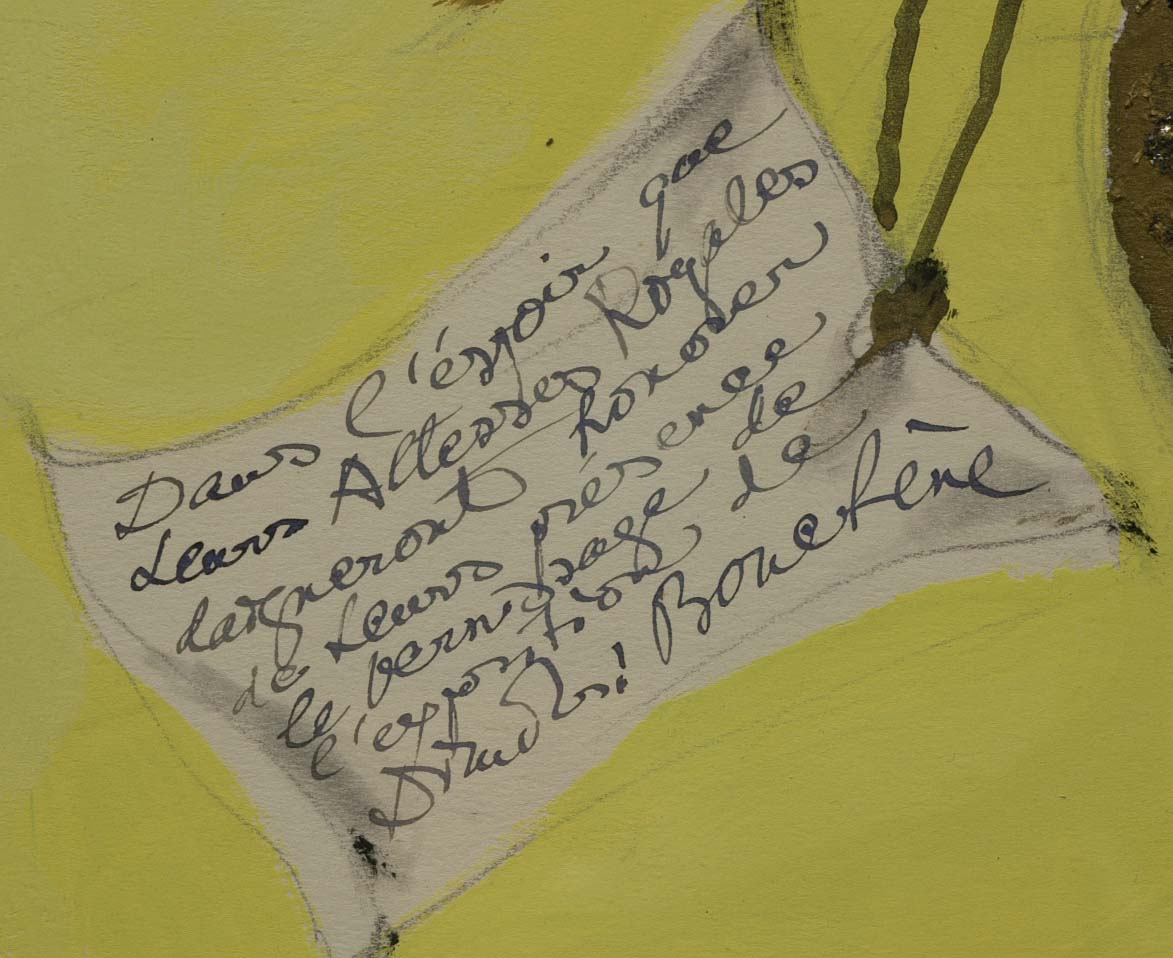 Dans l'éspoir que
Leurs Altesses Royales
daigneront honorer
de Leurs présence
le vernissage de
l'exposition de
Dimitri Bouchène